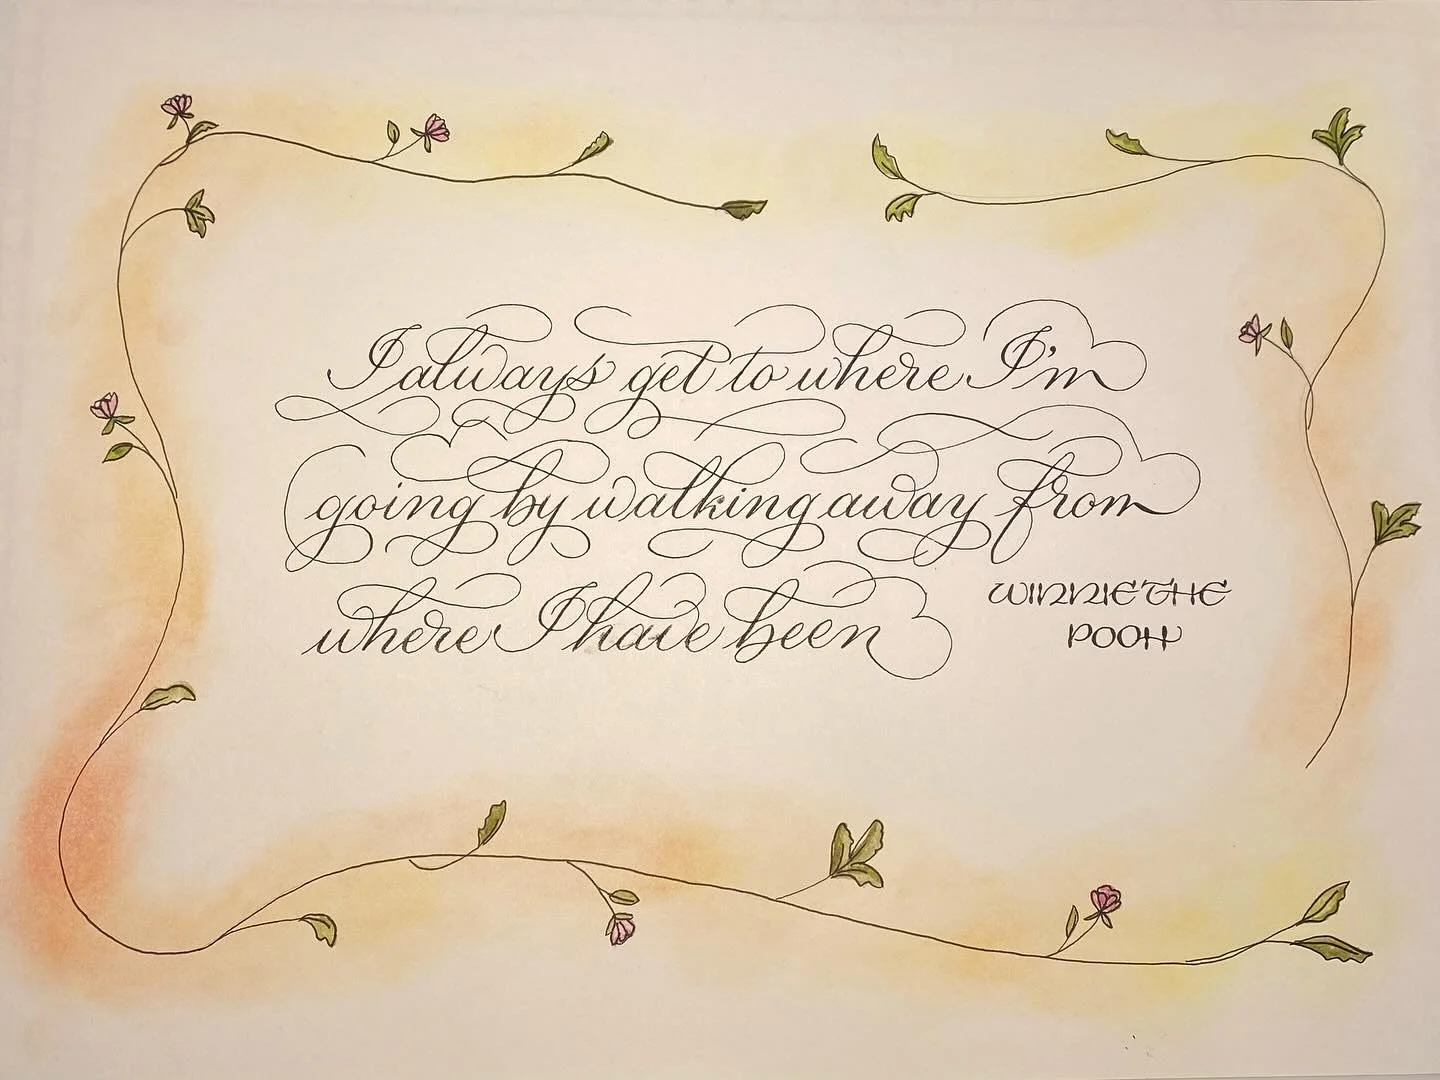 I always get to where I'm
going by walking away from
where I have been
WINNIE THE
POOH